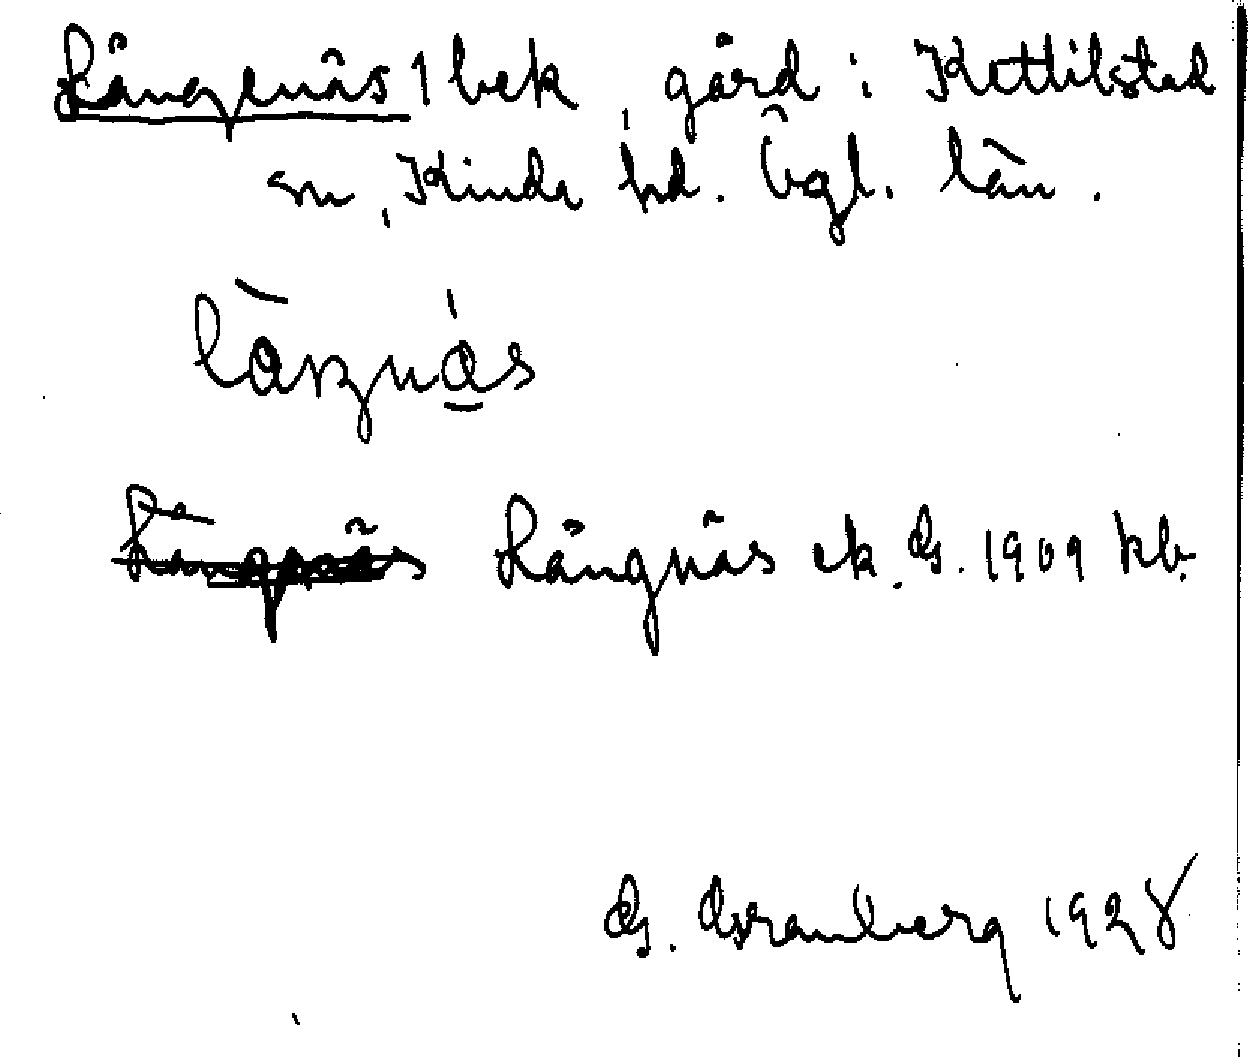 Långenäs 1 bek, gård i Kettilstad
sn, Kinda hd. Ögl. län.
Långnäs ek. G. 1909 kb.
G. Granberg 1928